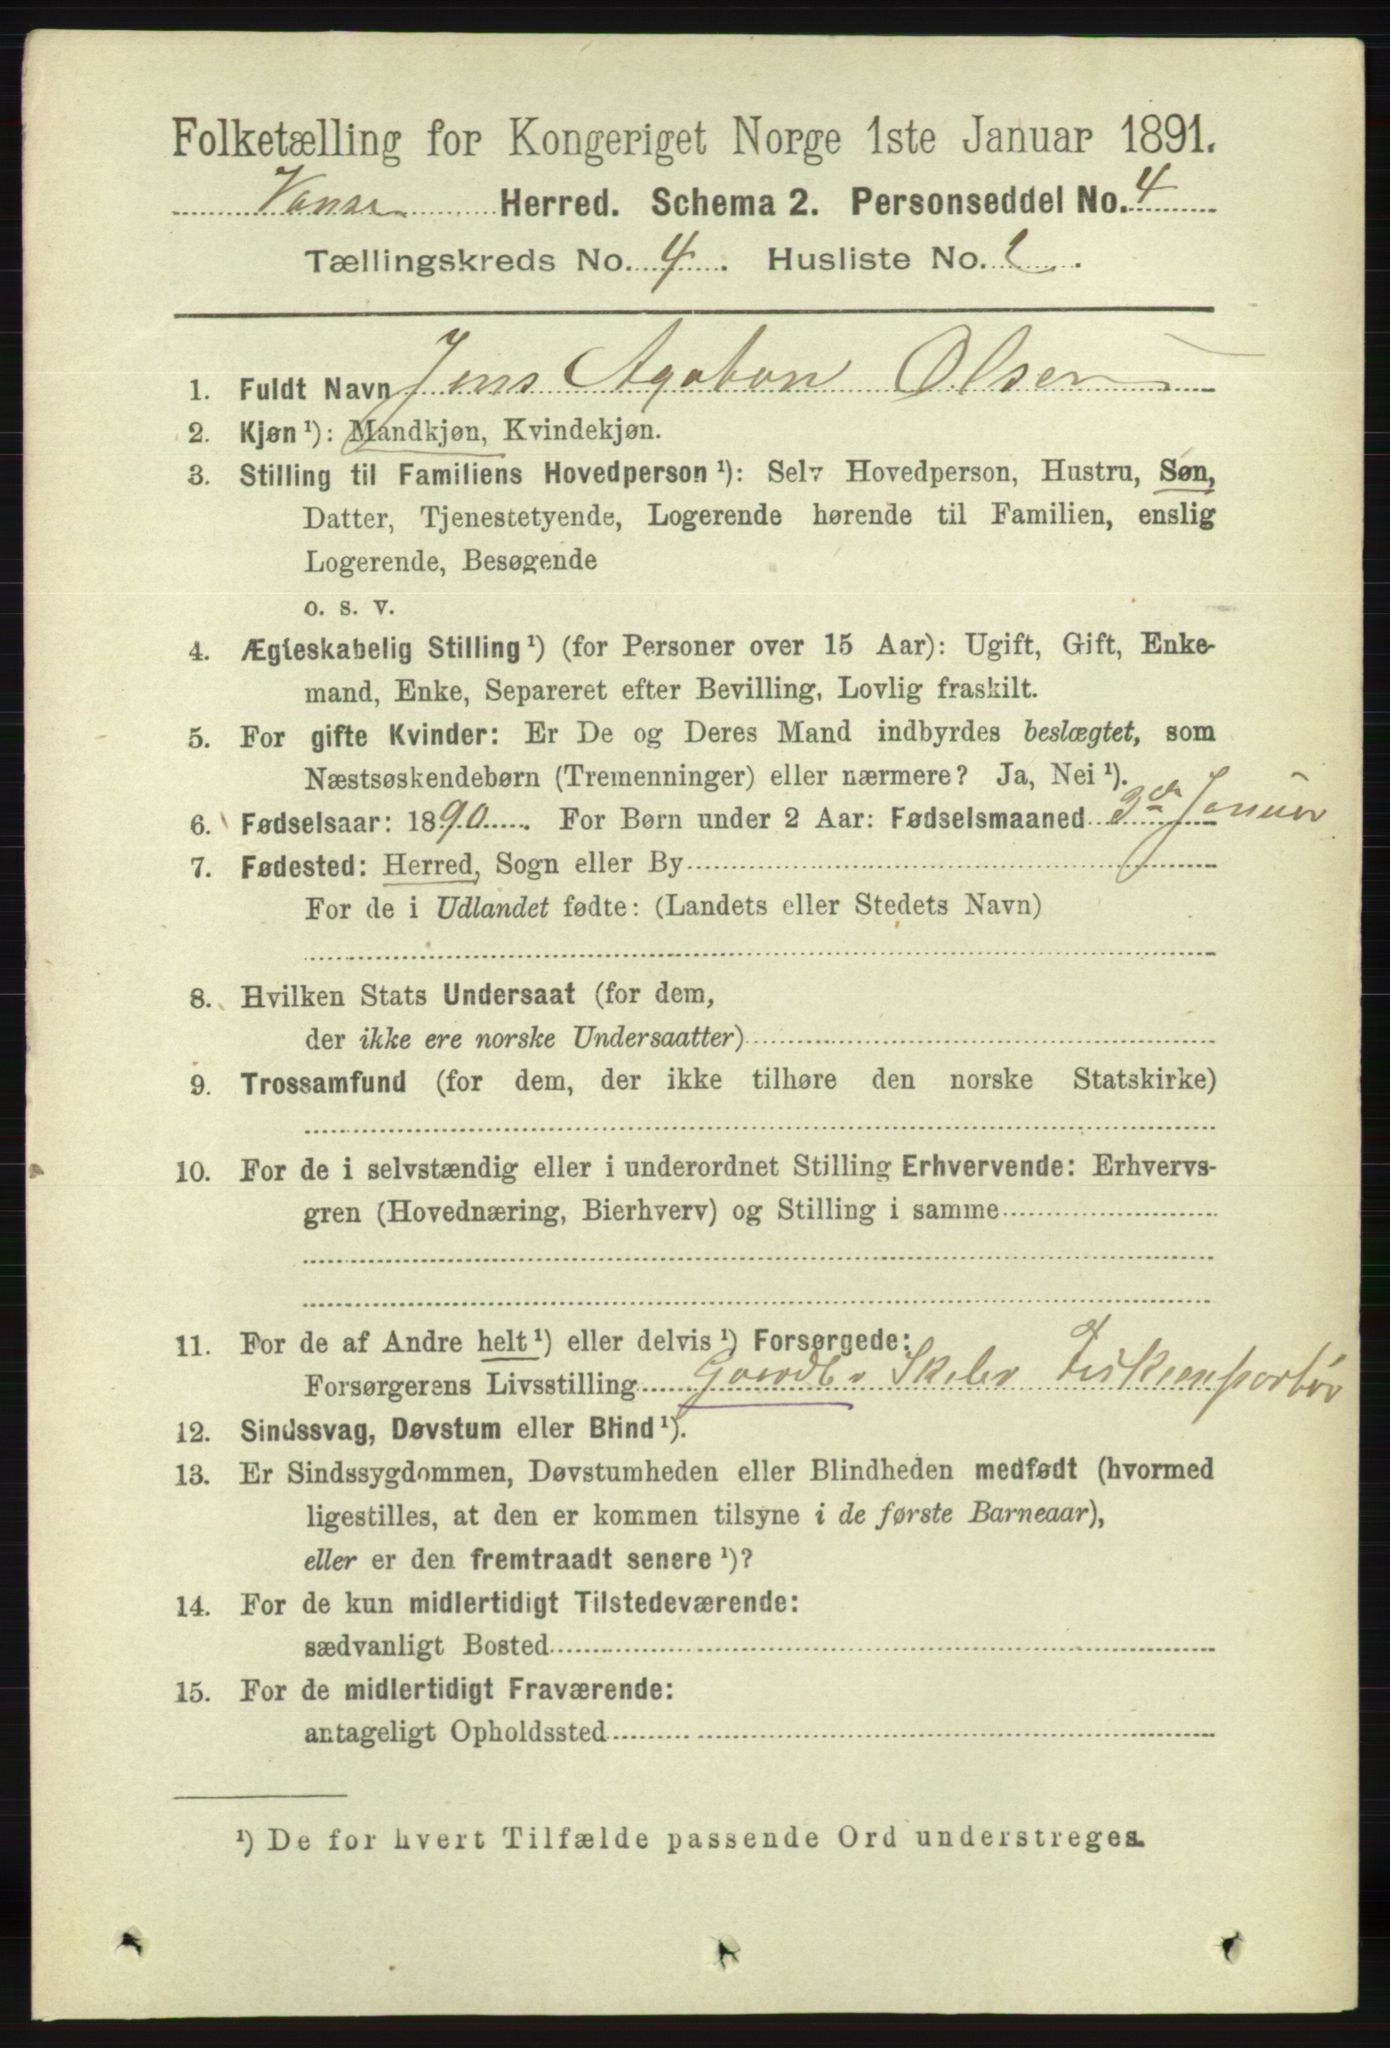 Folketælling for Kongeriget Norge 1ste Januar 1891.
Vanse Herred. Schema 2. Personseddel No. 4
Tællingskreds No. 4. Husliste No.
1. Fuldt Navn Jens Agaton Olsen
2. Kjøn ¹): Mandkjøn, Kvindekjøn.
3. Stilling til Familiens Hovedperson ¹): Selv Hovedperson, Hustru, Søn,
Datter, Tjenestetyende, Logerende hørende til Familien, enslig
Logerende, Besøgende
o. s. v.
4. Ægteskabelig Stilling ¹) (for Personer over 15 Aar): Ugift, Gift, Enke-
mand, Enke, Separeret efter Bevilling, Lovlig fraskilt.
5. For gifte Kvinder: Er De og Deres Mand indbyrdes beslægtet, som
Næstsøskendebørn (Tremenninger) eller nærmere? Ja, Nei ¹).
6. Fødselsaar: 1890. For Børn under 2 Aar: Fødselsmaaned 3de Januar
7. Fødested: Herred, Sogn eller By
For de i Udlandet fødte: (Landets eller Stedets Navn)
8. Hvilken Stats Undersaat (for dem,
der ikke ere norske Undersaatter)
9. Trossamfund (for dem, der ikke tilhøre den norske Statskirke)
10. For de i selvstændig eller i underordnet Stilling Erhvervende: Erhvervs-
gren (Hovednæring, Bierhverv) og Stilling i samme
11. For de af Andre helt ¹) eller delvis ¹) Forsørgede:
Forsørgerens Livsstilling Gaardb.
12. Sindssvag, Døvstum eller Blind ¹).
13. Er Sindssygdommen, Døvstumheden eller Blindheden medfødt (hvormed
ligestilles, at den er kommen tilsyne i de første Barneaar),
eller er den fremtraadt senere ¹)?
14. For de kun midlertidigt Tilstedeværende:
sædvanligt Bosted
15. For de midlertidigt Fraværende:
antageligt Opholdssted
¹) De for hvert Tilfælde passende Ord understreges.